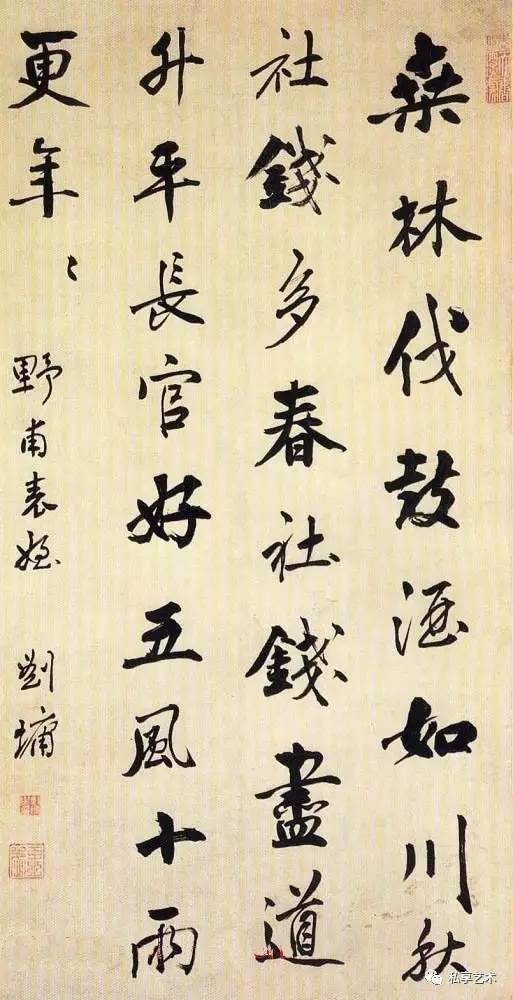 桒林伐鼓酒如川秋
社錢多春社錢盡道
升平長官好五風十雨
更年〻
野甫表姪
劉墉
私享艺术